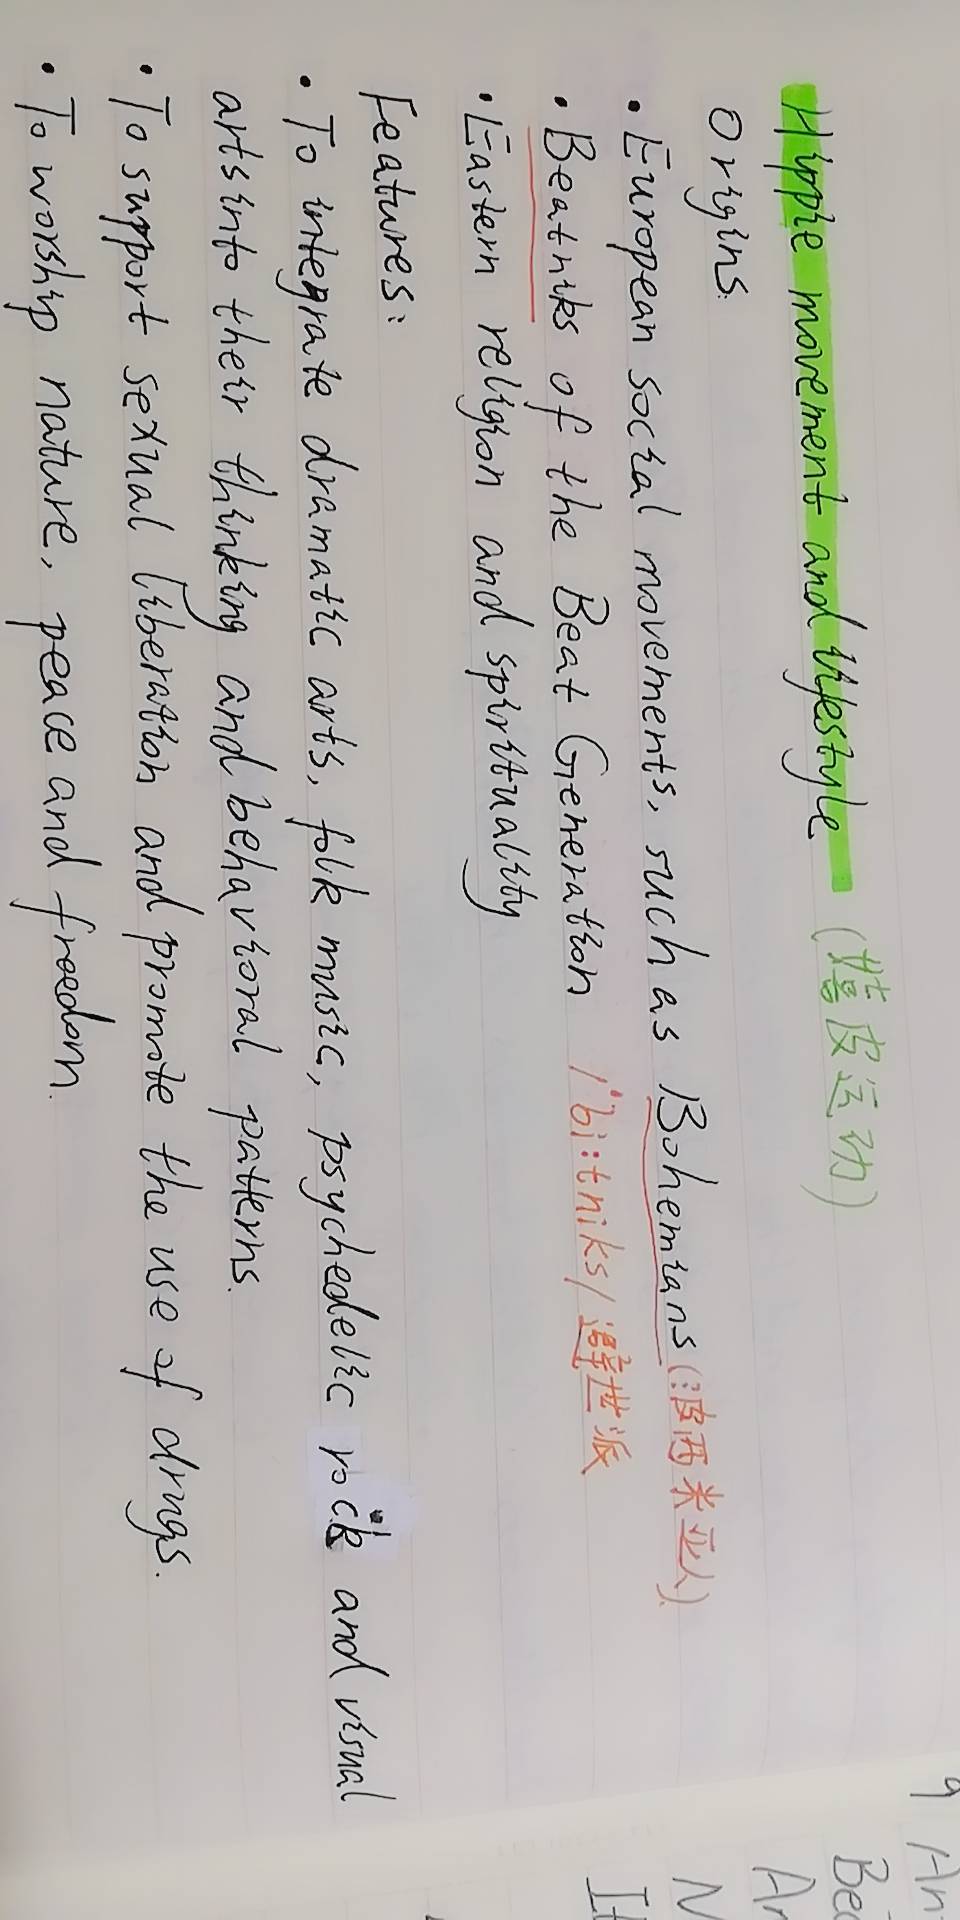 Hippie movement and lifestyle (嬉皮运动)
Origins:
• European social movements, such as Bohemians (波西米亚人).
• Beatniks of the Beat Generation /'bi:tniks/ 避世派
• Eastern religion and spirituality
Features:
• To integrate dramatic arts, folk music, psychedelic rock and visual
arts into their thinking and behavioral patterns.
• To support sexual liberation and promote the use of drugs.
• To worship nature, peace and freedom.
9 An
Be
Ar
N
It